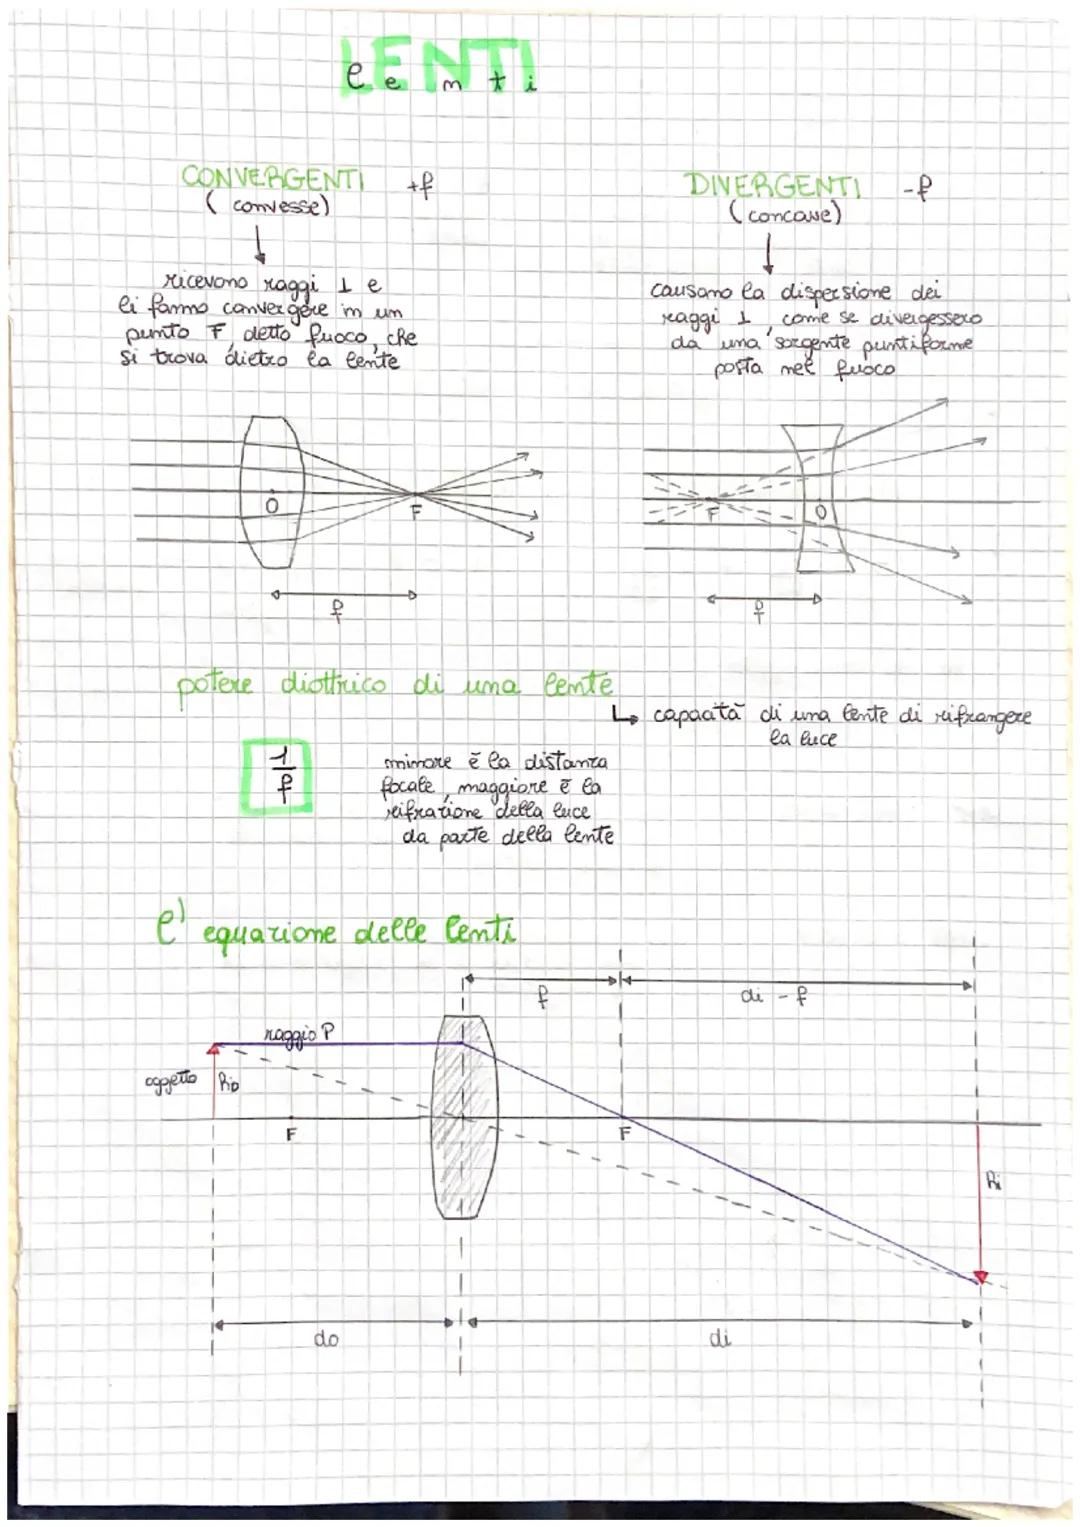 LENTI
lenti
CONVERGENTI +f
(convesse)
ricevono raggi ⊥ e
li fanno convergere in un
punto F, detto fuoco, che
si trova dietro la lente
DIVERGENTI -f
(concave)
causano la dispersione dei
raggi ⊥, come se divergessero
da una sorgente puntiforme
posta nel fuoco
O
F
f
F
O
f
potere diottrico di una lente
↳ capacità di una lente di rifrangere
la luce
1/f
minore è la distanza
focale, maggiore è la
rifrazione della luce
da parte della lente
l'equazione delle lenti
f
di - f
raggio P
oggetto ho
F
F
hi
do
di